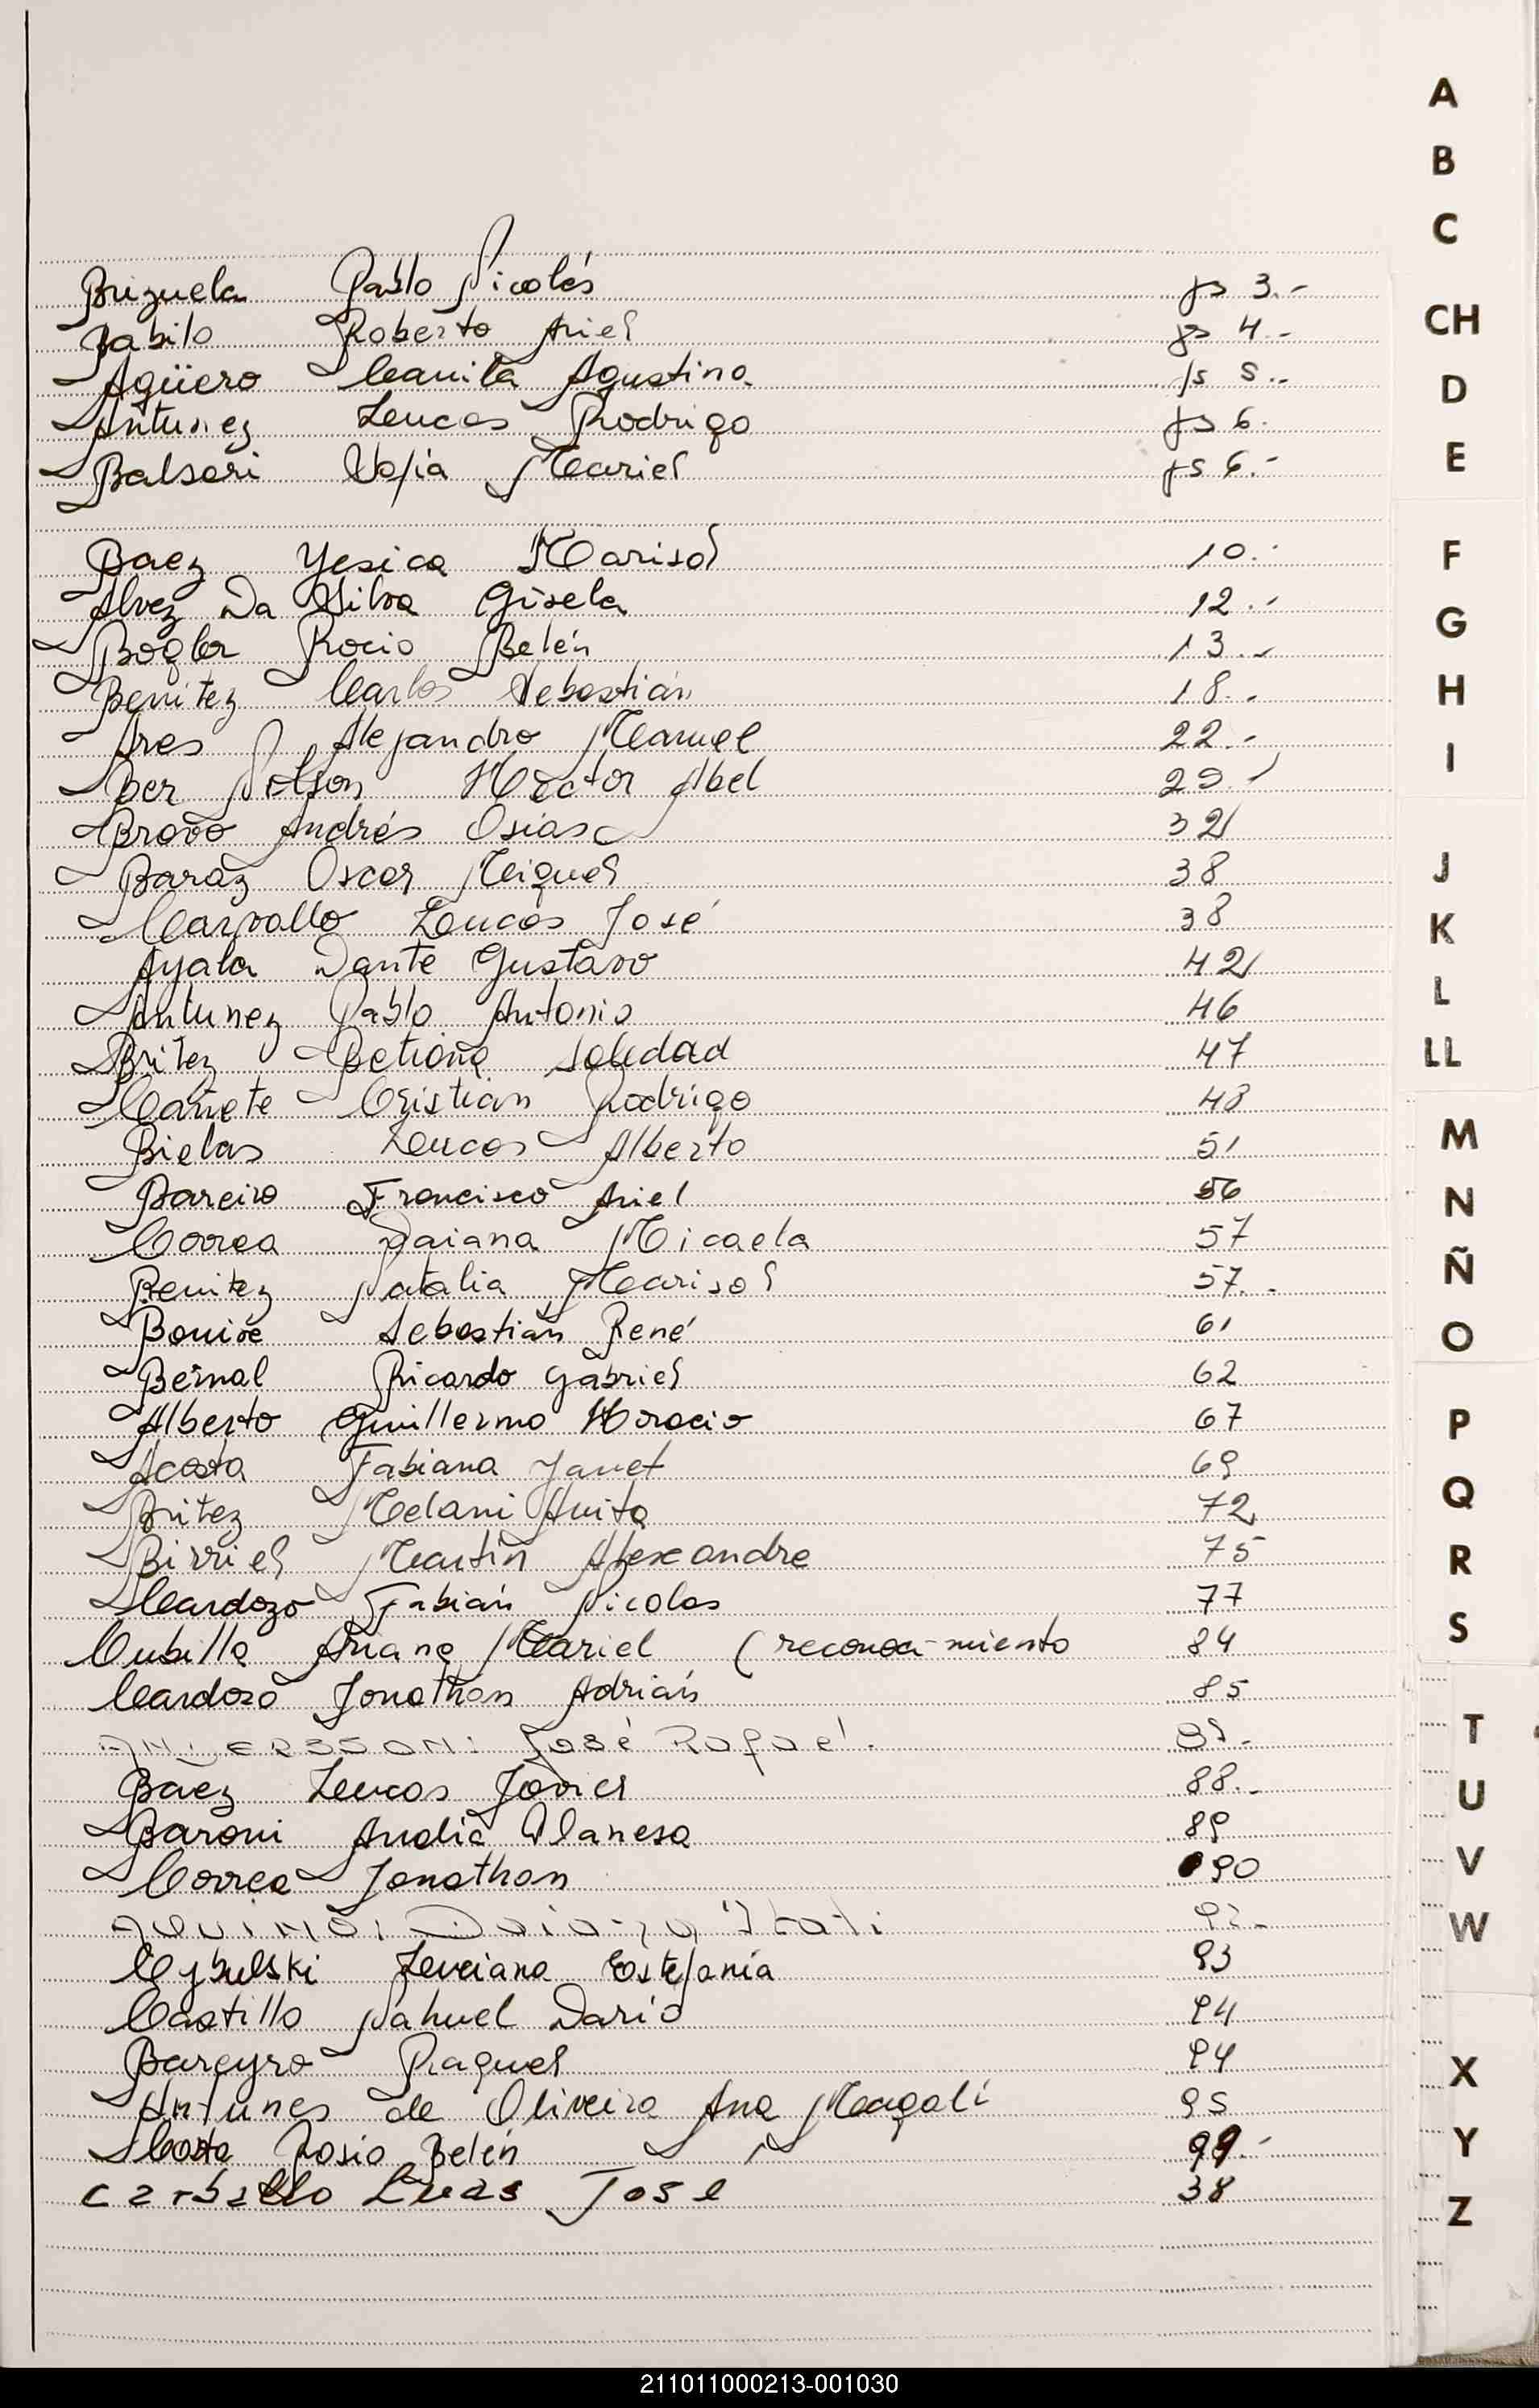 Brizuela Pablo Nicolás fs 3.-
Babilo Roberto Ariel fs 4.-
Agüero Camila Agustina fs 5.-
Antunez Lucas Rodrigo fs 6.
Balsari Sofia Mariel fs 6.-
Baez Yesica Marisol 10.-
Alvez Da Silva Gisela 12.-
Bogler Rocio Belén 13.-
Benitez Carlos Sebastián 18.-
Ares Alejandro Manuel 22.-
Ber Nelson Héctor Abel 29.-
Bravo Andrés Osias 32
Baraz Oscar Miguel 38
Carvallo Lucas José 38
Ayala Dante Gustavo 42
Antunez Pablo Antonio 46
Britez Betiana Soledad 47
Cañete Cristian Rodrigo 48
Bielas Lucas Alberto 51
Bareiro Francisco Ariel 56
Correa Daiana Micaela 57
Benitez Natalia Marisol 57.-
Sebastián René 61
Bernal Ricardo Gabriel 62
Alberto Guillermo Horacio 67
Acosta Fabiana Janet 69
Britez Melani Anita 72
Birriel Martín Alexandre 75
Cardozo Fabián Nicolas 77
Cubilla Ariana Mariel (reconoci-miento 84
Cardozo Jonathan Adrián 85
ANDERSSON: José Rafael. 87.-
Baez Lucas Javier 88.-
Baroni Analia Vanesa 89
Correa Jonathan 90
AQUINO: Daiana Itati 92.-
Cybulski Luciana Estefania 93
Castillo Nahuel Dario 94
Bareyro Raquel 94
Antunes de Oliveira Ana Magali 95
Costa Rosio Belén 99.-
Carballo Lucas Jose 38
A
B
C
CH
D
E
F
G
H
I
J
K
L
LL
M
N
Ñ
O
P
Q
R
S
T
U
V
W
X
Y
Z
211011000213-001030